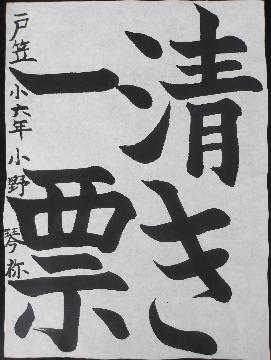 清き
一票
戸笠小六年 小野琴祢